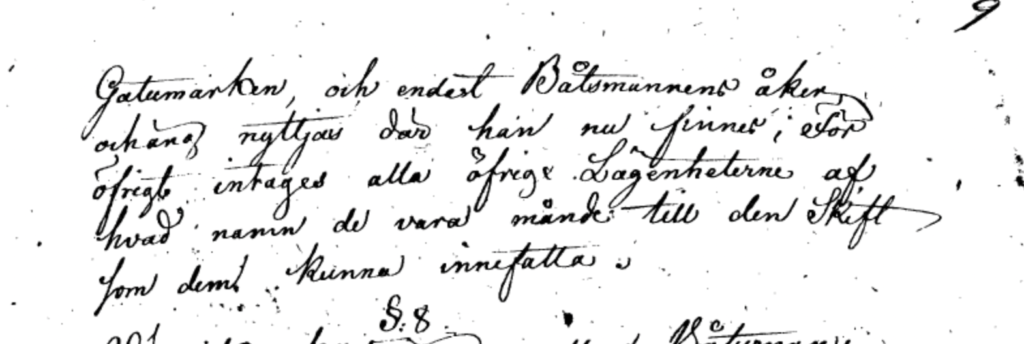 9
Gatumarken, och endast Båtsmannens åker
och äng nyttjas där han nu finnes; För
öfrigt intages alla öfrige Lägenheterne af
hvad namn de vara månde till den Skift
som dem kunna innefatta.
§. 8